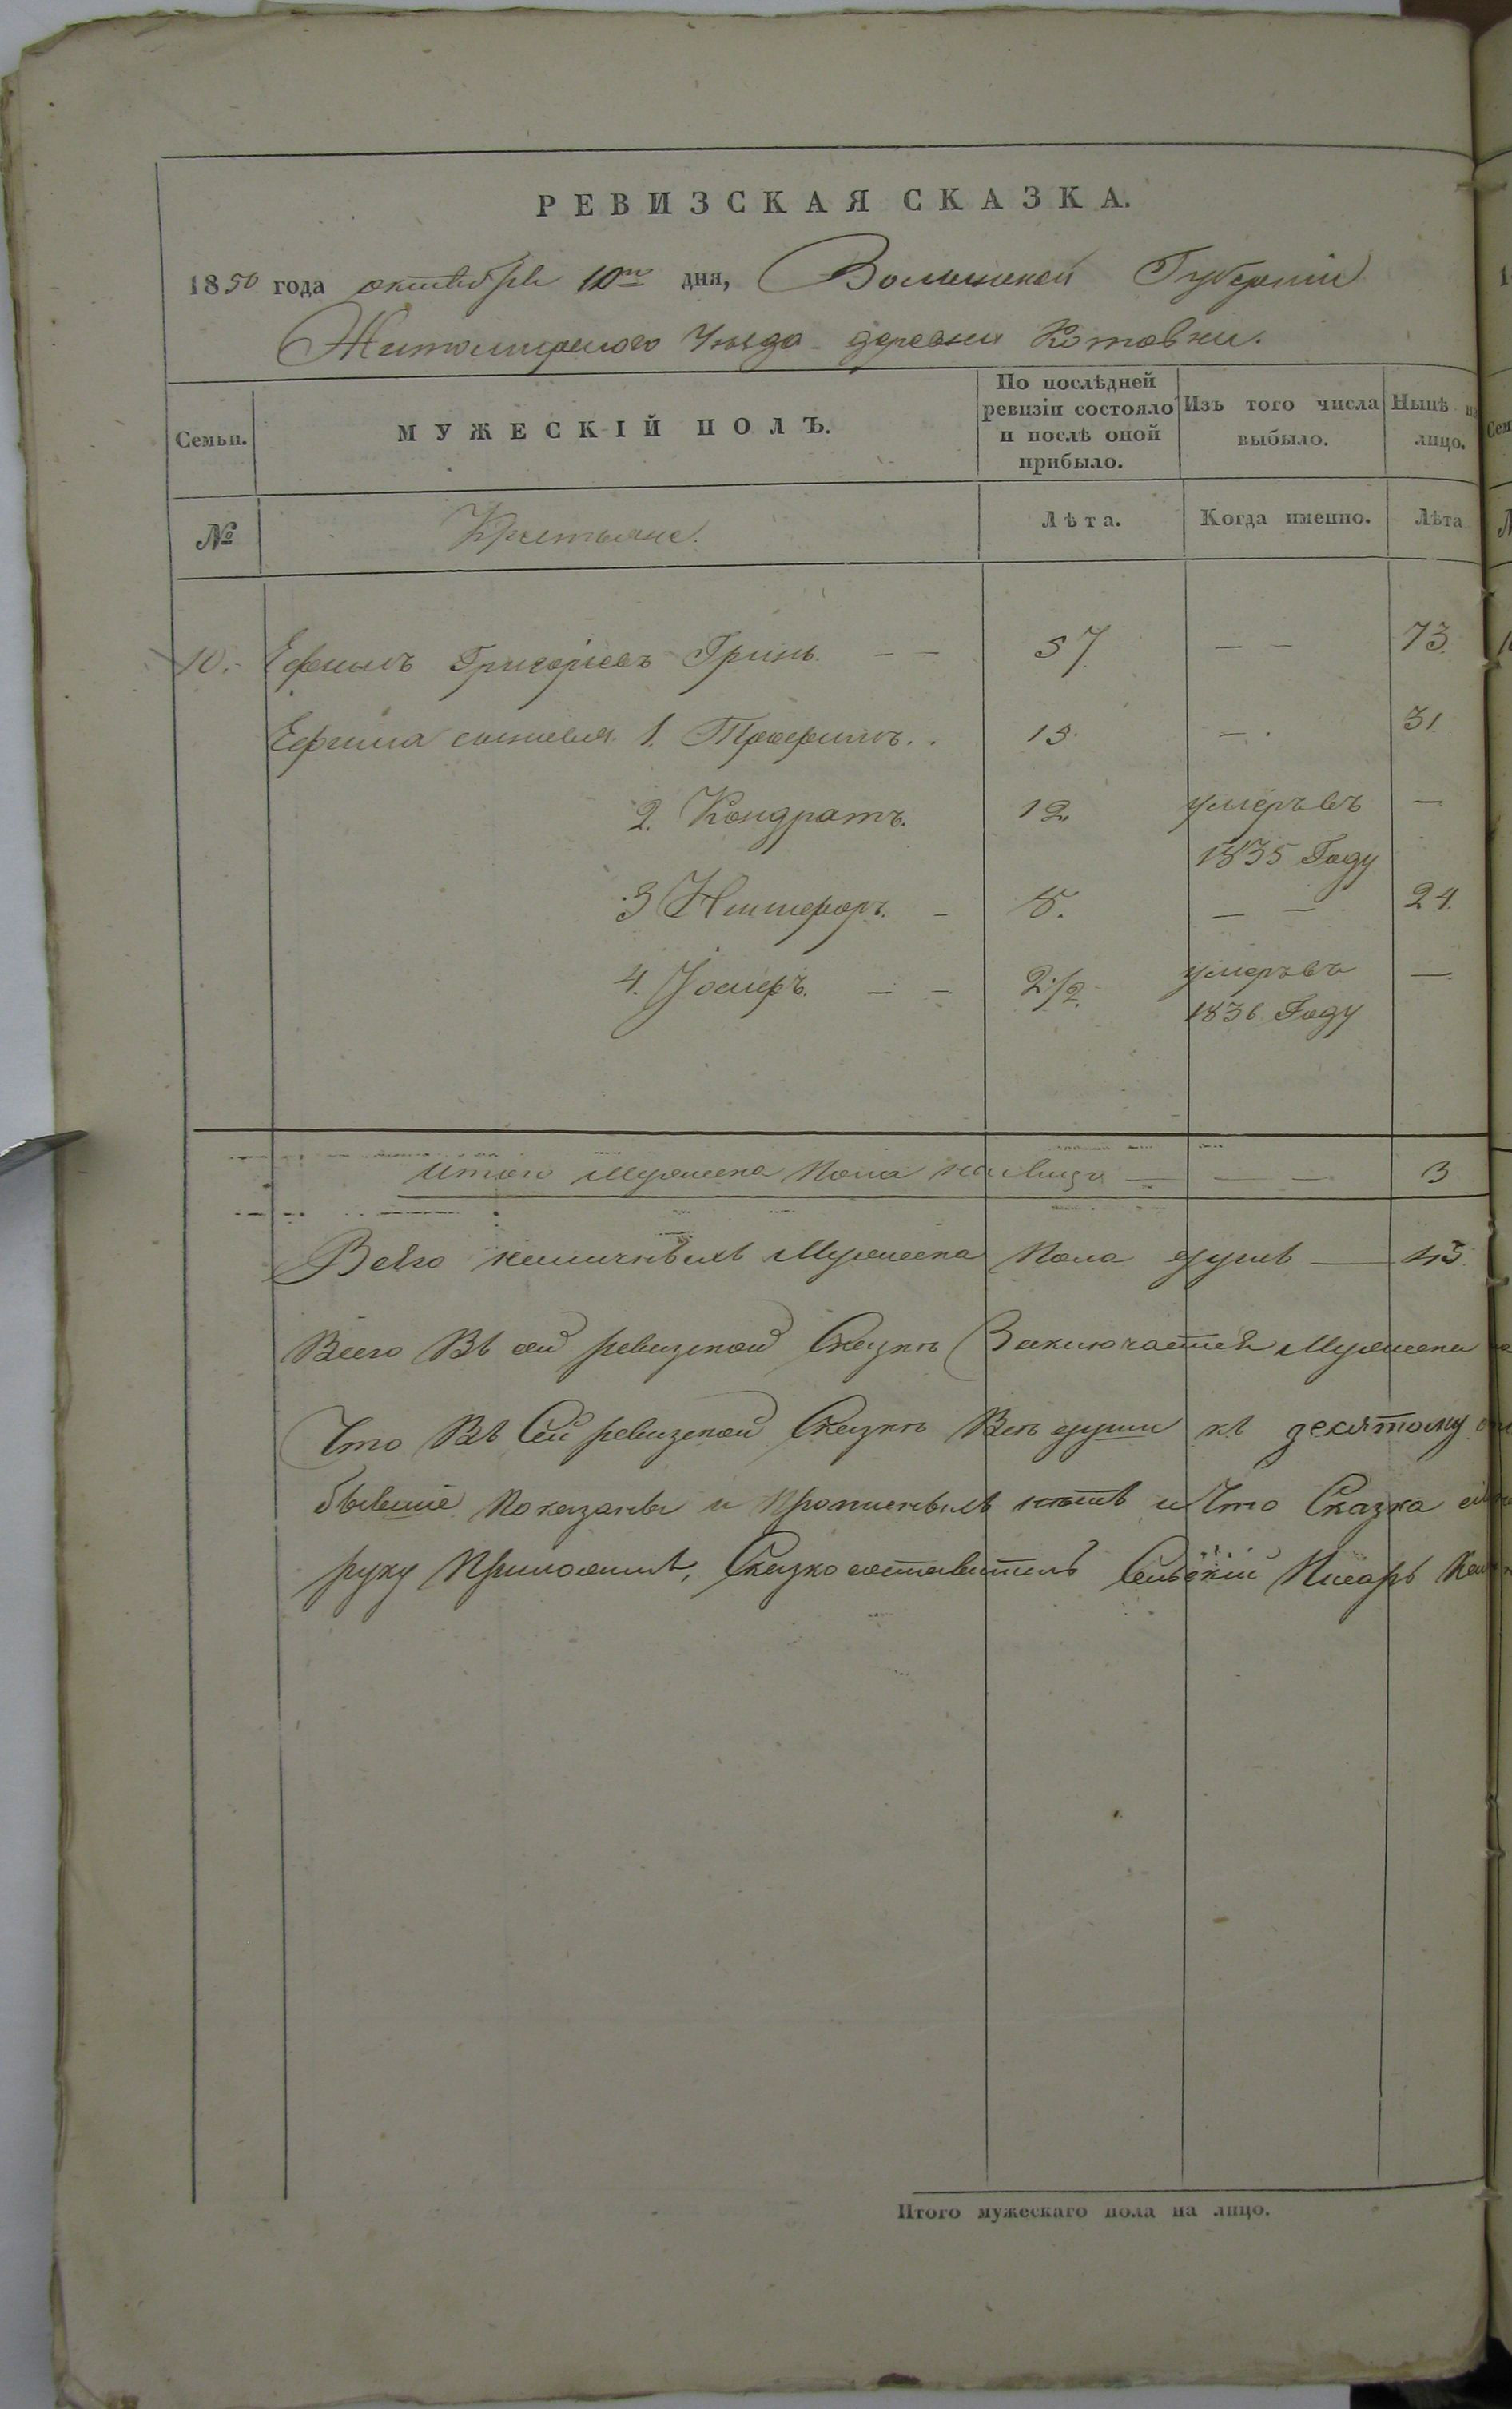 РЕВИЗСКАЯ СКАЗКА.
1850 года октября 10го дня, Волынской Губерніи
Житомирского Уезда деревни Котовки.
Семьи.
МУЖЕСКІЙ ПОЛЪ.
По послѣдней ревизіи состояло и послѣ оной прибыло.
Изъ того числа выбыло.
Нынѣ на лицо.
№
Крестьяне.
Лѣта.
Когда именно.
Лѣта
10. Ефимъ Григоріевъ Гринь. — — 57. — — 73.
Ефима сыновья 1. Трофимъ. . 15. — . 31.
2. Кондратъ. 12. умеръ въ —
1835 Году
3 Никифоръ. — 8. — — 24.
4. Іосифъ. — — 2 1/2. умеръ въ —
1836 Году
Итого Мужеска Пола на лицо — — — 3
Всего наличныхъ Мужеска Пола душъ — 43.
Всего Въ сей ревизской Сказкѣ Заключается Мужеска
Что Въ Сей ревизской Сказкѣ Всѣ души къ десятому
бывшіе Показаны и Прописныхъ нѣтъ и Что Сказка
руку Приложилъ, Сказкосоставитель Сельскій Писарь
Итого мужескаго пола на лицо.